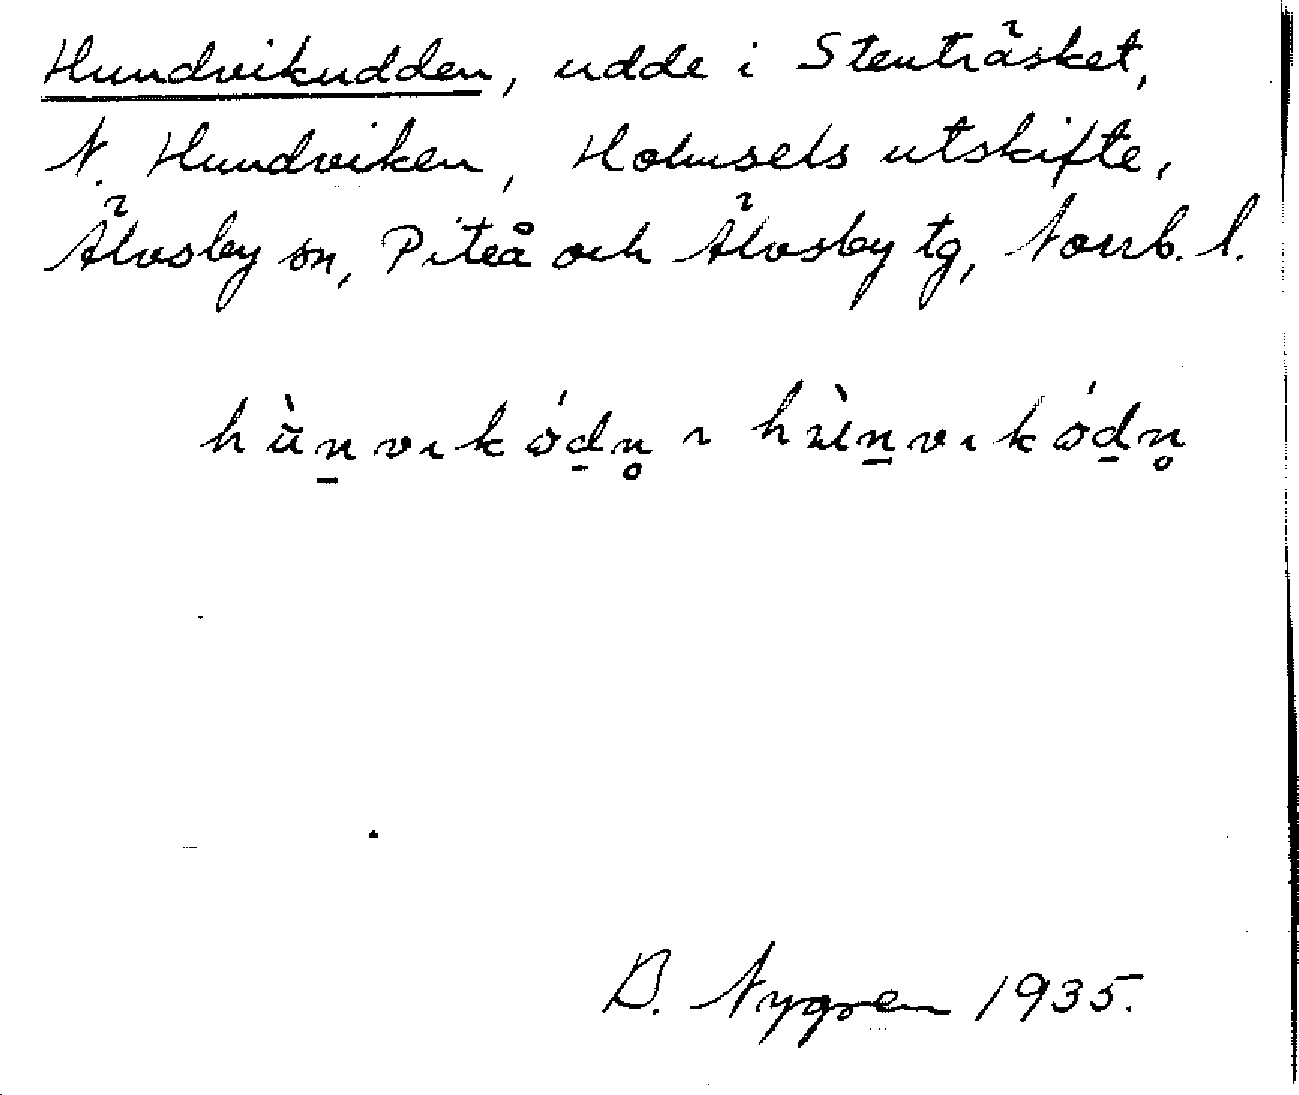 Hundvikudden, udde i Stenträsket,
N. Hundviken, Holmsels utskifte,
Älvsby sn, Piteå och Älvsby tg, Norrb. l.
hùn̲vık ǿd̲n̥ ~ hùn̲vık ǿd̲n̥
B. Nygren 1935.